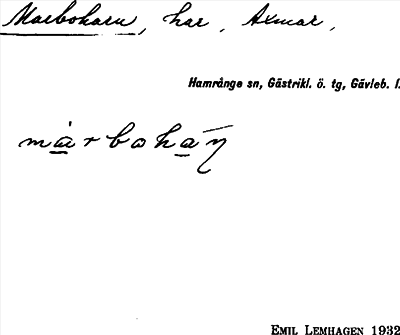 Marboharu, har, Axmar,
Hamrånge sn, Gästrikl. ö. tg, Gävleb. l.
EMIL LEMHAGEN 1932